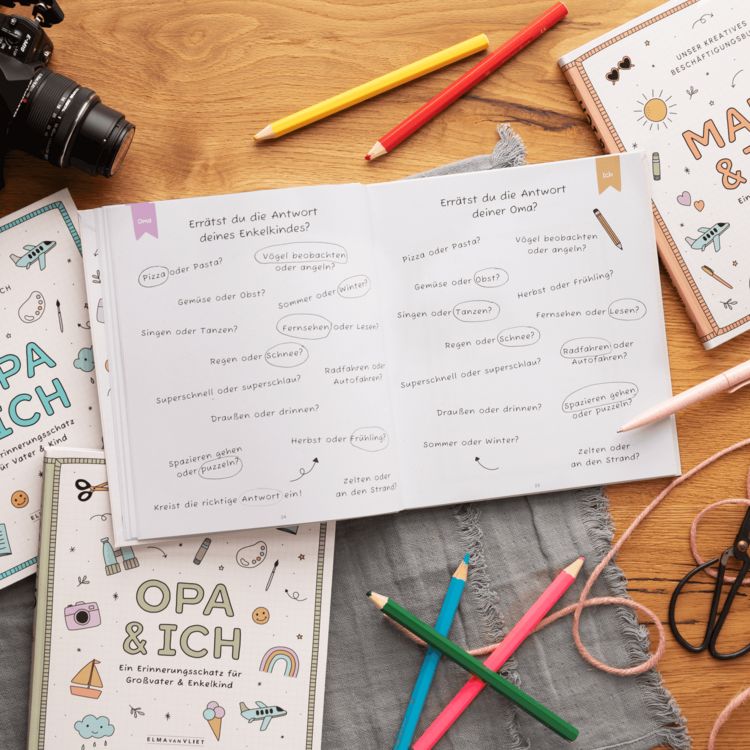 Oma
Errätst du die Antwort
deines Enkelkindes?
Pizza oder Pasta?
Vögel beobachten
oder angeln?
Gemüse oder Obst?
Sommer oder Winter?
Singen oder Tanzen?
Fernsehen oder Lesen?
Regen oder Schnee?
Radfahren oder
Autofahren?
Superschnell oder superschlau?
Draußen oder drinnen?
Herbst oder Frühling?
Spazieren gehen
oder puzzeln?
Zelten oder
an den Strand?
Kreist die richtige Antwort ein!
Ich
Errätst du die Antwort
deiner Oma?
Pizza oder Pasta?
Vögel beobachten
oder angeln?
Gemüse oder Obst?
Herbst oder Frühling?
Singen oder Tanzen?
Fernsehen oder Lesen?
Regen oder Schnee?
Radfahren oder
Autofahren?
Superschnell oder superschlau?
Draußen oder drinnen?
Spazieren gehen
oder puzzeln?
Sommer oder Winter?
Zelten oder
an den Strand?
UNSER KREATIVES
MA
&
Ein
CH
PA
ICH
für Vater & Kind
OPA
& ICH
Ein Erinnerungsschatz für
Großvater & Enkelkind
ELMA VAN VLIET